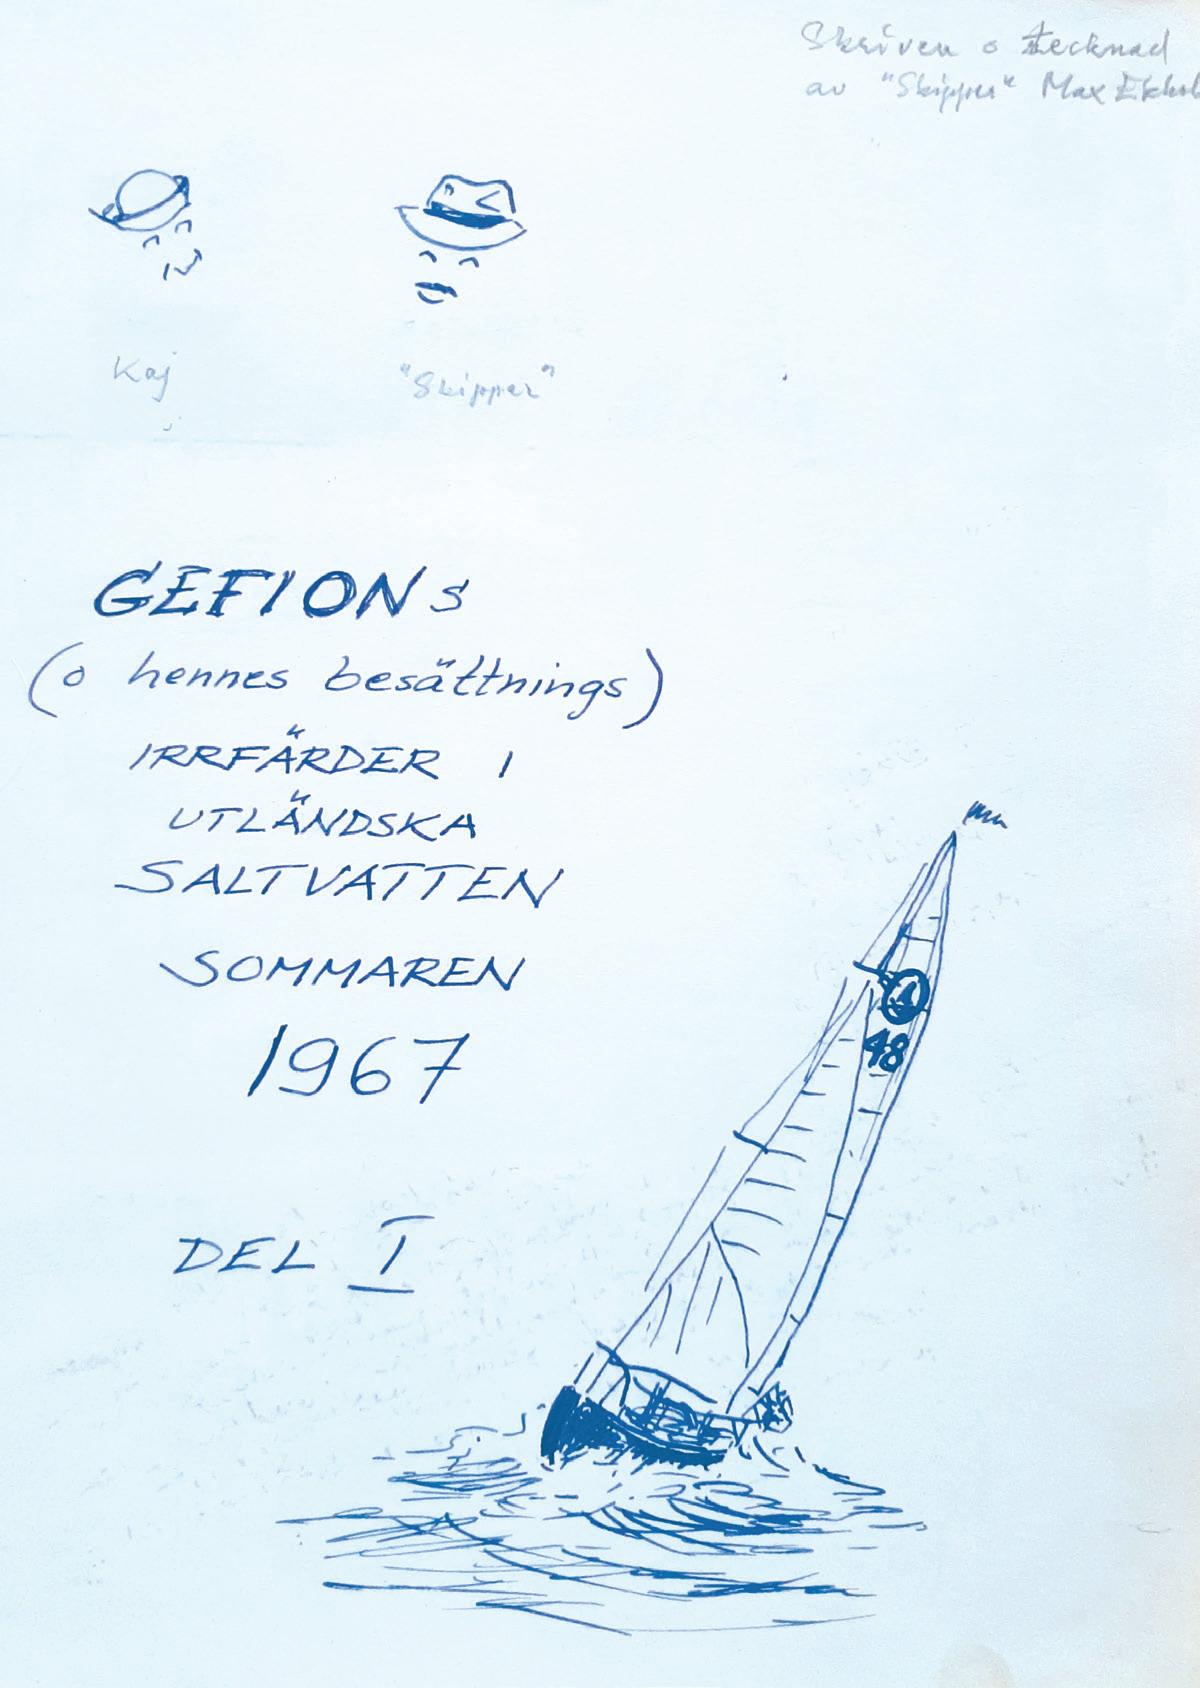 Skriven o tecknad
av "Skipper" Max
Kaj
"Skipper"
GEFIONs
(o hennes besättnings)
IRRFÄRDER I
UTLÄNDSKA
SALTVATTEN
SOMMAREN
1967
48
DEL I